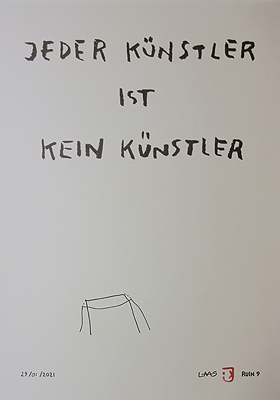 JEDER KÜNSTLER
IST
KEIN KÜNSTLER
29/01/2021
LAAS
RUIN 9